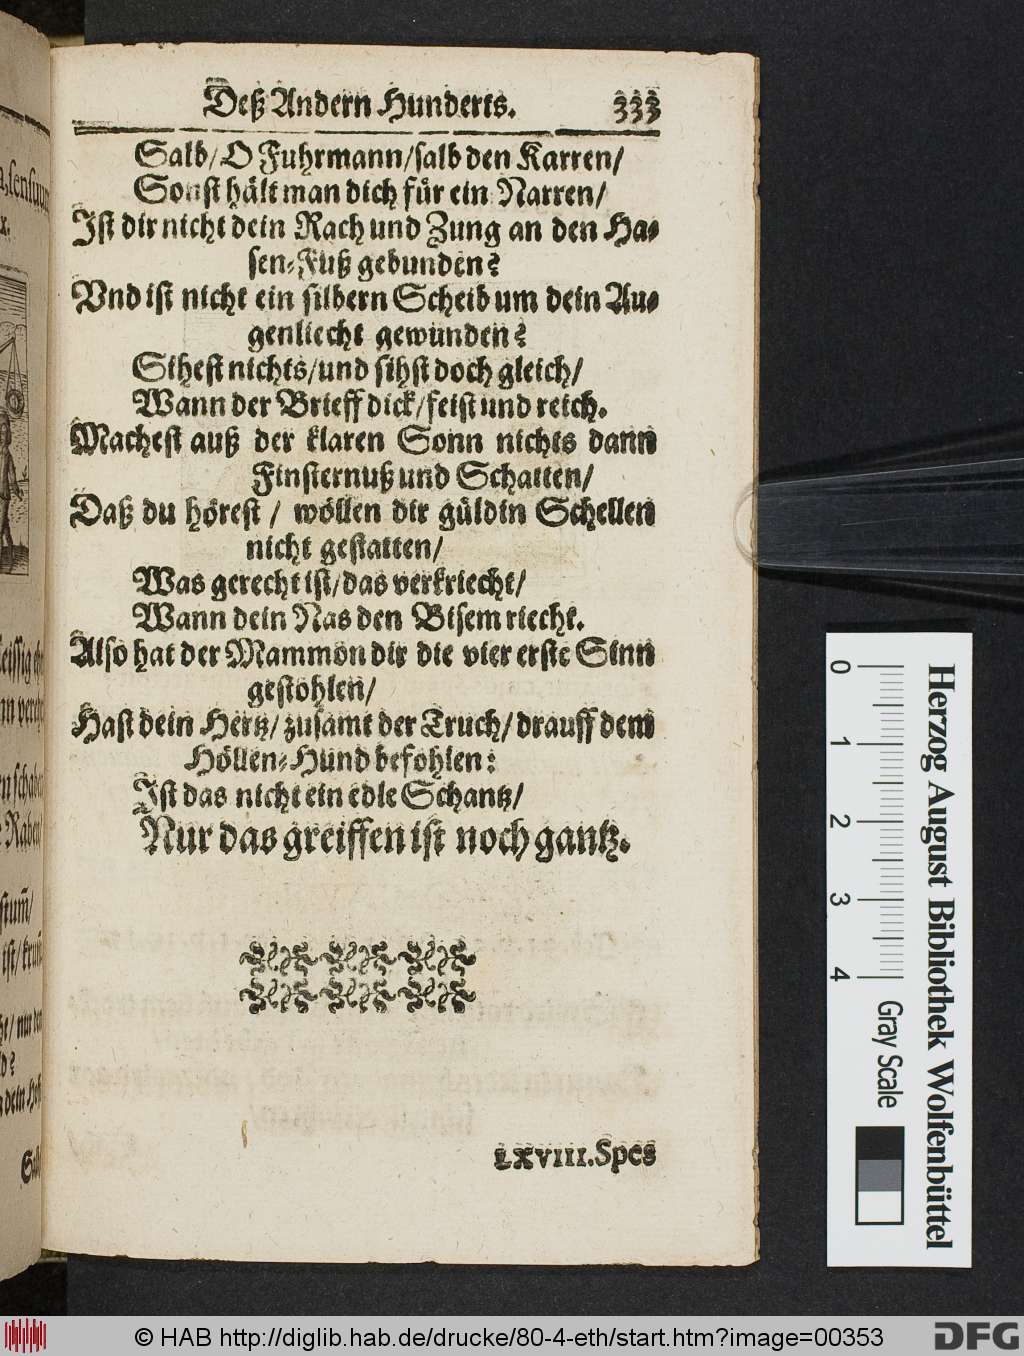 Deß Andern Hunderts. 333
Salb/ O Fuhrmann/ salb den Karren/
Sonst hält man dich für ein Narren/
Ist dir nicht dein Rach und Zung an den Ha-
sen-Fuß gebunden?
Vnd ist nicht ein silbern Scheib um dein Au-
genliecht gewunden?
Sihest nichts/ und sihst doch gleich/
Wann der Brieff dick/ feist und reich.
Machest auß der klaren Sonn nichts dann
Finsternuß und Schatten/
Daß du hörest / wöllen dir güldin Schellen
nicht gestatten/
Was gerecht ist/ das verkriecht/
Wann dein Nas den Bisem riecht.
Also hat der Mammon dir die vier erste Sinn
gestohlen/
Hast dein Hertz/ zusamt der Truch/ drauff dem
Höllen-Hund befohlen:
Ist das nicht ein edle Schantz/
Nur das greiffen ist noch gantz.
LXVIII. Spes
0 1 2 3 4
Gray Scale
Herzog August Bibliothek Wolfenbüttel
© HAB http://diglib.hab.de/drucke/80-4-eth/start.htm?image=00353
DFG